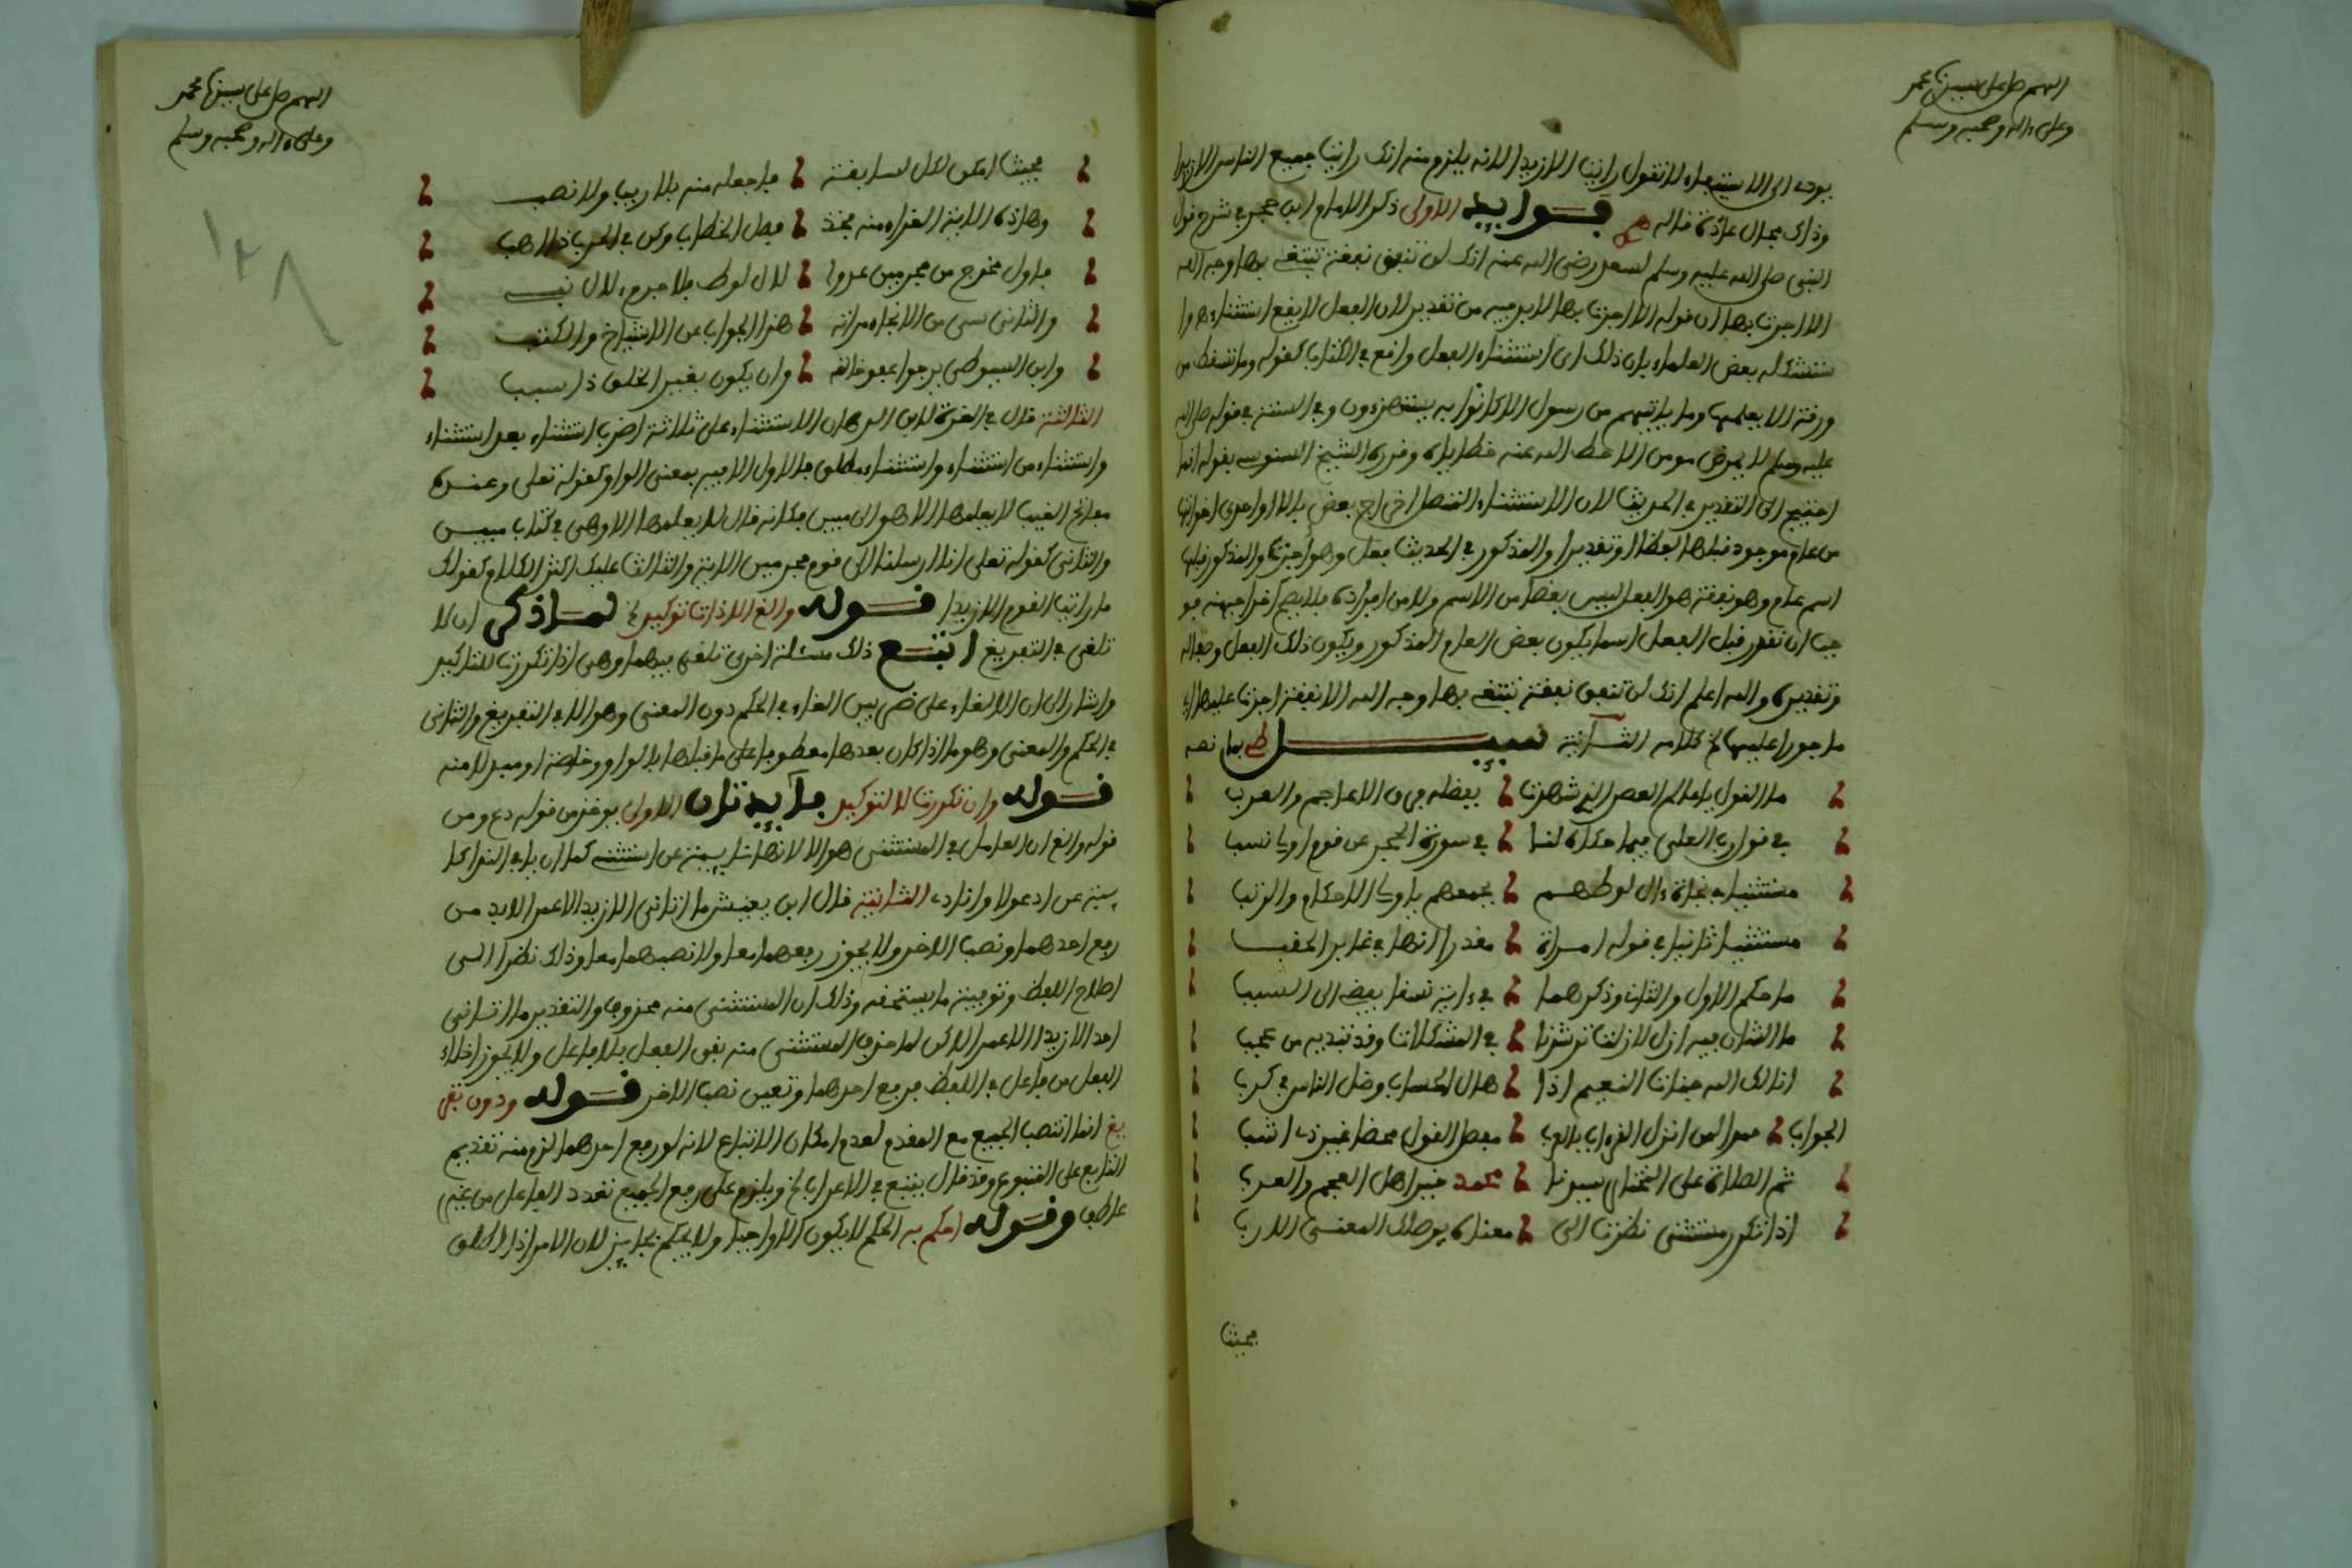 اللهم صل على سيدنا محمد
وعلى ءاله وصحبه وسلم
يودى الى الاستبعاد لا تقول رايت الا زيدا لانه يلزم منه انك رايت جميع الناس الا زيدا
وذلك محال عادة قاله فوايد الاولى ذكر الامام ابن حجر في شرح قول
النبى صلى الله عليه وسلم لسعد رضى الله عنه انك لن تنفق نفقة تبتغى بها وجه الله
الا اجرت بها ان قوله الا اجرت بها لا بد فيه من تقدير لان الفعل لا يقع استثناء وا
ستشكله بعض العلماء بان ذلك اى استثناء الفعل واقع في الكتاب كقوله وما تسقط من
ورقة الا يعلمها وما ياتيهم من رسول الا كانوا به يستهزءون وفي السنة في قوله صلى الله
عليه وسلم لا يمرض مومن الا حط الله عنه خطاياه وقرره الشيخ السنوسى بقوله انما
احتيج الى التقدير في الحديث لان الاستثناء المتصل اخراج بعض بالا او احدى اخواتها
من عام موجود قبلها لفظا او تقديرا والمذكور في الحديث فعل وهو اجرت والمذكور قبلها
اسم عام وهو نفقة هو الفعل ليس بعضا من الاسم ولا من افراده فلا يصح اخراجه منه فو
جب ان نقدر قبل الفعل اسما يكون بعض العام المذكور ويكون ذلك الفعل وصفا له
وتقديره والله اعلم انك لن تنفق نفقة تبتغى بها وجه الله الا نفقة اجرت عليها اى
ماجورا عليها الخ كلامه الثانية سيل بما نصه
ما القول يا عالم العصر الذى شهرت بفضله في الاعاجم والعرب
في قول رب العلى فيما حكاه لنا في سورة الحجر عن قوم اولى نسب
مستثنيا نجاة ءال لوطهم جمعهم يا ولى الاحكام والرتب
مستثنيا ثانيا في قوله امراة مقدرا انها في غابر الحقب
ما حكم الاول والثان وذكرهما في ءاية نسفا يفضى الى السبب
ما الشان فيه ازل لازلت ترشدنا في المشكلات وقد تبديه من عجب
انالك الله جنات النعيم اذا هال الحساب وضل الناس في كرب
الجواب حمدا لمن انزل القرءان بالعرب مفصل القول محضا غير ذى اشب
ثم الصلاة على المختار سيدنا محمد خير اهل العجم والعرب
اذا تكرر مستثنى نظرت الى معناه يوصلك المعنى الى الارب
بحيث
اللهم صل على سيدنا محمد
وعلى ءاله وصحبه وسلم
١٢٨
بحيث امكن لكل لسابقة فاجعله منه بلا ريب ولا نصب
وهاذه الاية الغراء منه فخذ فصل الخطاب وكن في الحرب ذا رهب
فاول مخرج من مجرمين عدوا لال لوط بلا جرم ءلال نبى
والثانى سى من الانجاء مراته هذا الجواب عن الاشياخ والكتب
وابن السيوطى يرجو عفو خالقه وان يكون بغير الخلق ذا سبب
الثالثة قال في الغرة لابن الدهان الاستثناء على ثلاثة اضرب استثناء بعد استثناء
واستثناء من استثناء واستثناء مطلق فالاول الا فيه بمعنى الواو كقوله تعلى وعنده
مفاتح الغيب لا يعلمها الا هو الى مبين فكانه قال لا يعلمها الا وهى في كتاب مبين
والثانى كقوله تعلى انا ارسلنا الى قوم مجرمين الاية والثالث عليك اكثر الكلام كقولك
ما رايت القوم الا زيدا قوله والغ الا ذات توكيد الخ لما ذكر ان الا
تلغى في التفريغ اتبع ذلك مسئلة اخرى تلغى فيها وهى اذا تكررت للتاكيد
واشار الى ان الالغاء على ضربين الغاء في الحكم دون المعنى وهو الا في التفريغ والثانى
في الحكم والمعنى وهو ما اذا كان بعدها معطوفا على ما قبلها بالواو وخاصة او مبدلا منه
قوله وان تكررت لا لتوكيد فايدتان الاولى يوخذ من قوله دع ومن
قوله والغ ان العامل في المستثنى هو الا لانها نايبة عن استثنى كما ان يا في النداء نا
يبة عن ادعو او انادى الثانية قال ابن يعيش ما اتانى الا زيد الا عمرا لا بد من
رفع احدهما ونصب الاخر ولا يجوز رفعهما معا ولا نصبهما معا وذلك نظرا الى
اصلاح اللفظ وتوفيته ما يستحقه وذلك ان المستثنى منه محذوف والتقدير ما اتانى
احد الا زيدا الا عمرا لاكن لما حذف المستثنى منه بقى الفعل بلا فاعل ولا يجوز اخلاء
الفعل من فاعل في اللفظ فرفع احدهما وتعين نصب الاخر قوله ودون تفر
يغ انما انتصب الجميع مع المقدم لعدم امكان الاتباع لانه لو رفع احدهما لزم منه تقديم
التابع على المتبوع وقد قال يتبع في الاعراب الخ ويلزم على رفع الجميع تعدد الفاعل من غير
عاطف وقوله احكم به الحكم لا يكون الا واجبا ولا يحكم بجايز لان الامر اذا اطلق